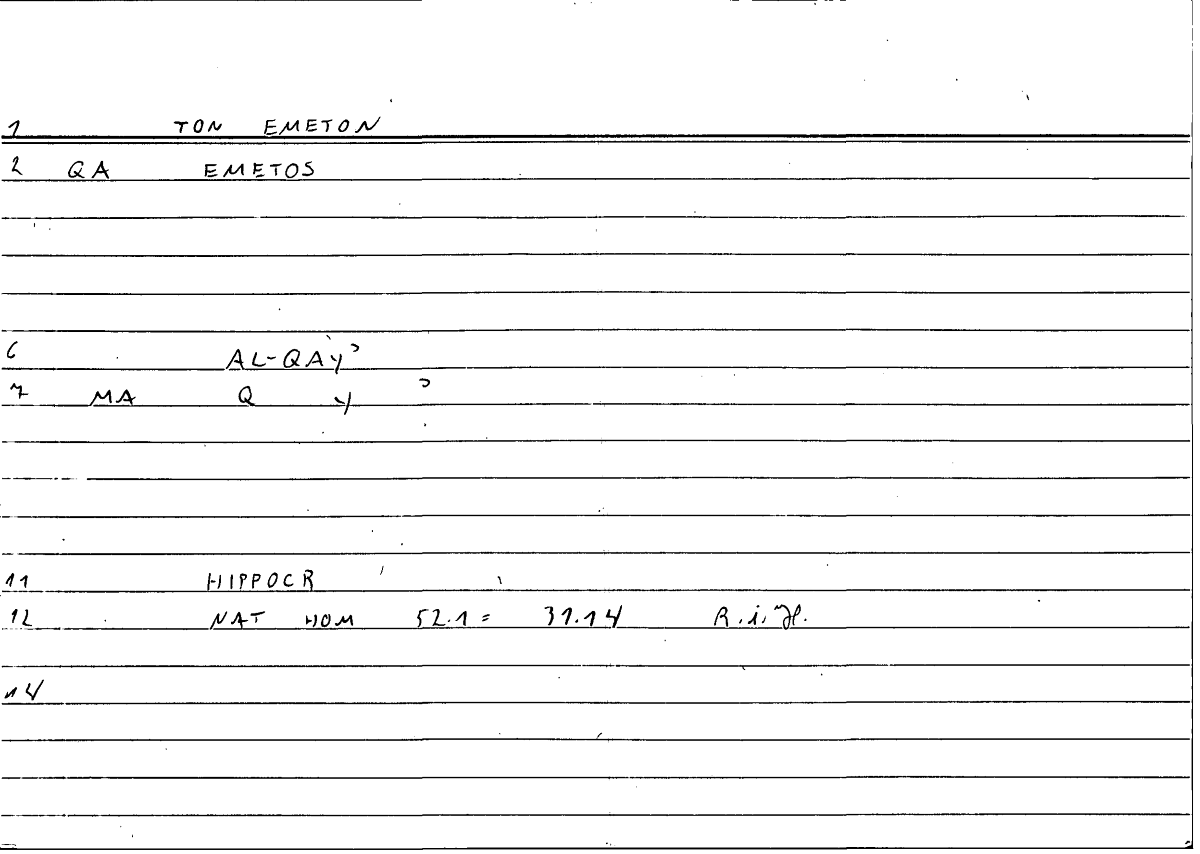 1 TON EMETON
2 QA EMETOS
6 AL-QAyʾ
7 MA Q y ʾ
11 HIPPOCR
12 NAT HOM 52.1 = 31.14 R.i.H.
14